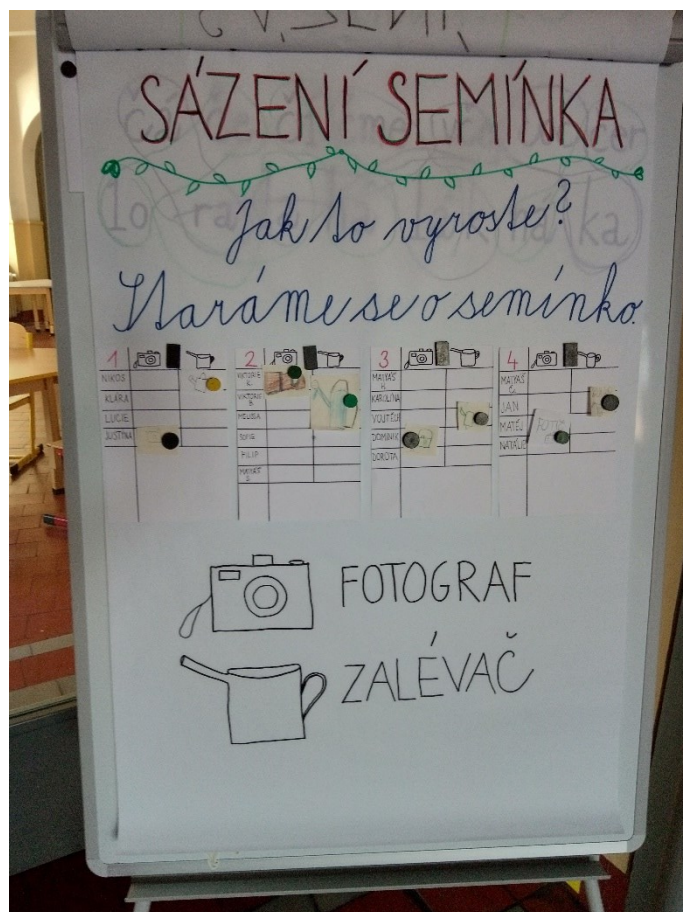 SÁZENÍ SEMÍNKA
Jak to vyroste?
Staráme se o semínko.
1
NIKOS
KLÁRA
LUCIE
JUSTÝNA
2
VIKTORIE
VIKTORIE
MELISSA
FILIP
MATYÁŠ
3
MATYÁŠ
KAROLÍNA
VOJTĚCH
DOMINIK
DOROTA
4
MATYÁŠ
JAN
MATĚJ
NATÁLIE
FOTOGRAF
ZALÉVAČ